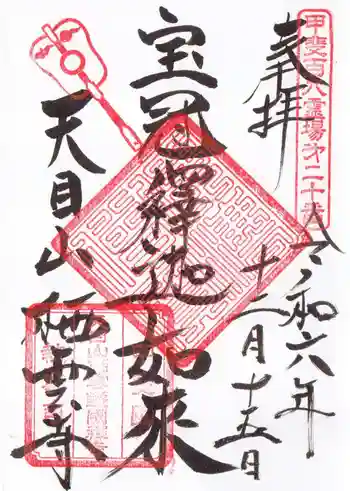 奉拝
甲斐百八霊場第二十番
令和六年
十二月十五日
宝冠釋迦如来
天目山栖雲寺